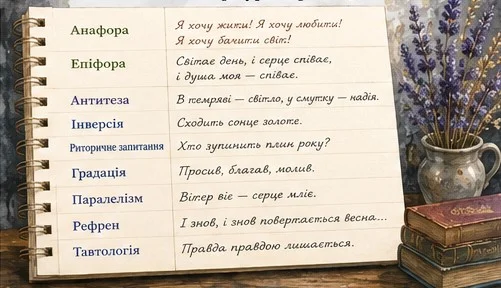 Анафора
Я хочу жити! Я хочу любити!
Я хочу бачити світ!
Епіфора
Світає день, і серце співає,
і душа моя — співає.
Антитеза
В темряві — світло, у смутку — надія.
Інверсія
Сходить сонце золоте.
Риторичне запитання
Хто зупинить плин року?
Градація
Просив, благав, молив.
Паралелізм
Вітер віє — серце мліє.
Рефрен
І знов, і знов повертається весна...
Тавтологія
Правда правдою лишається.